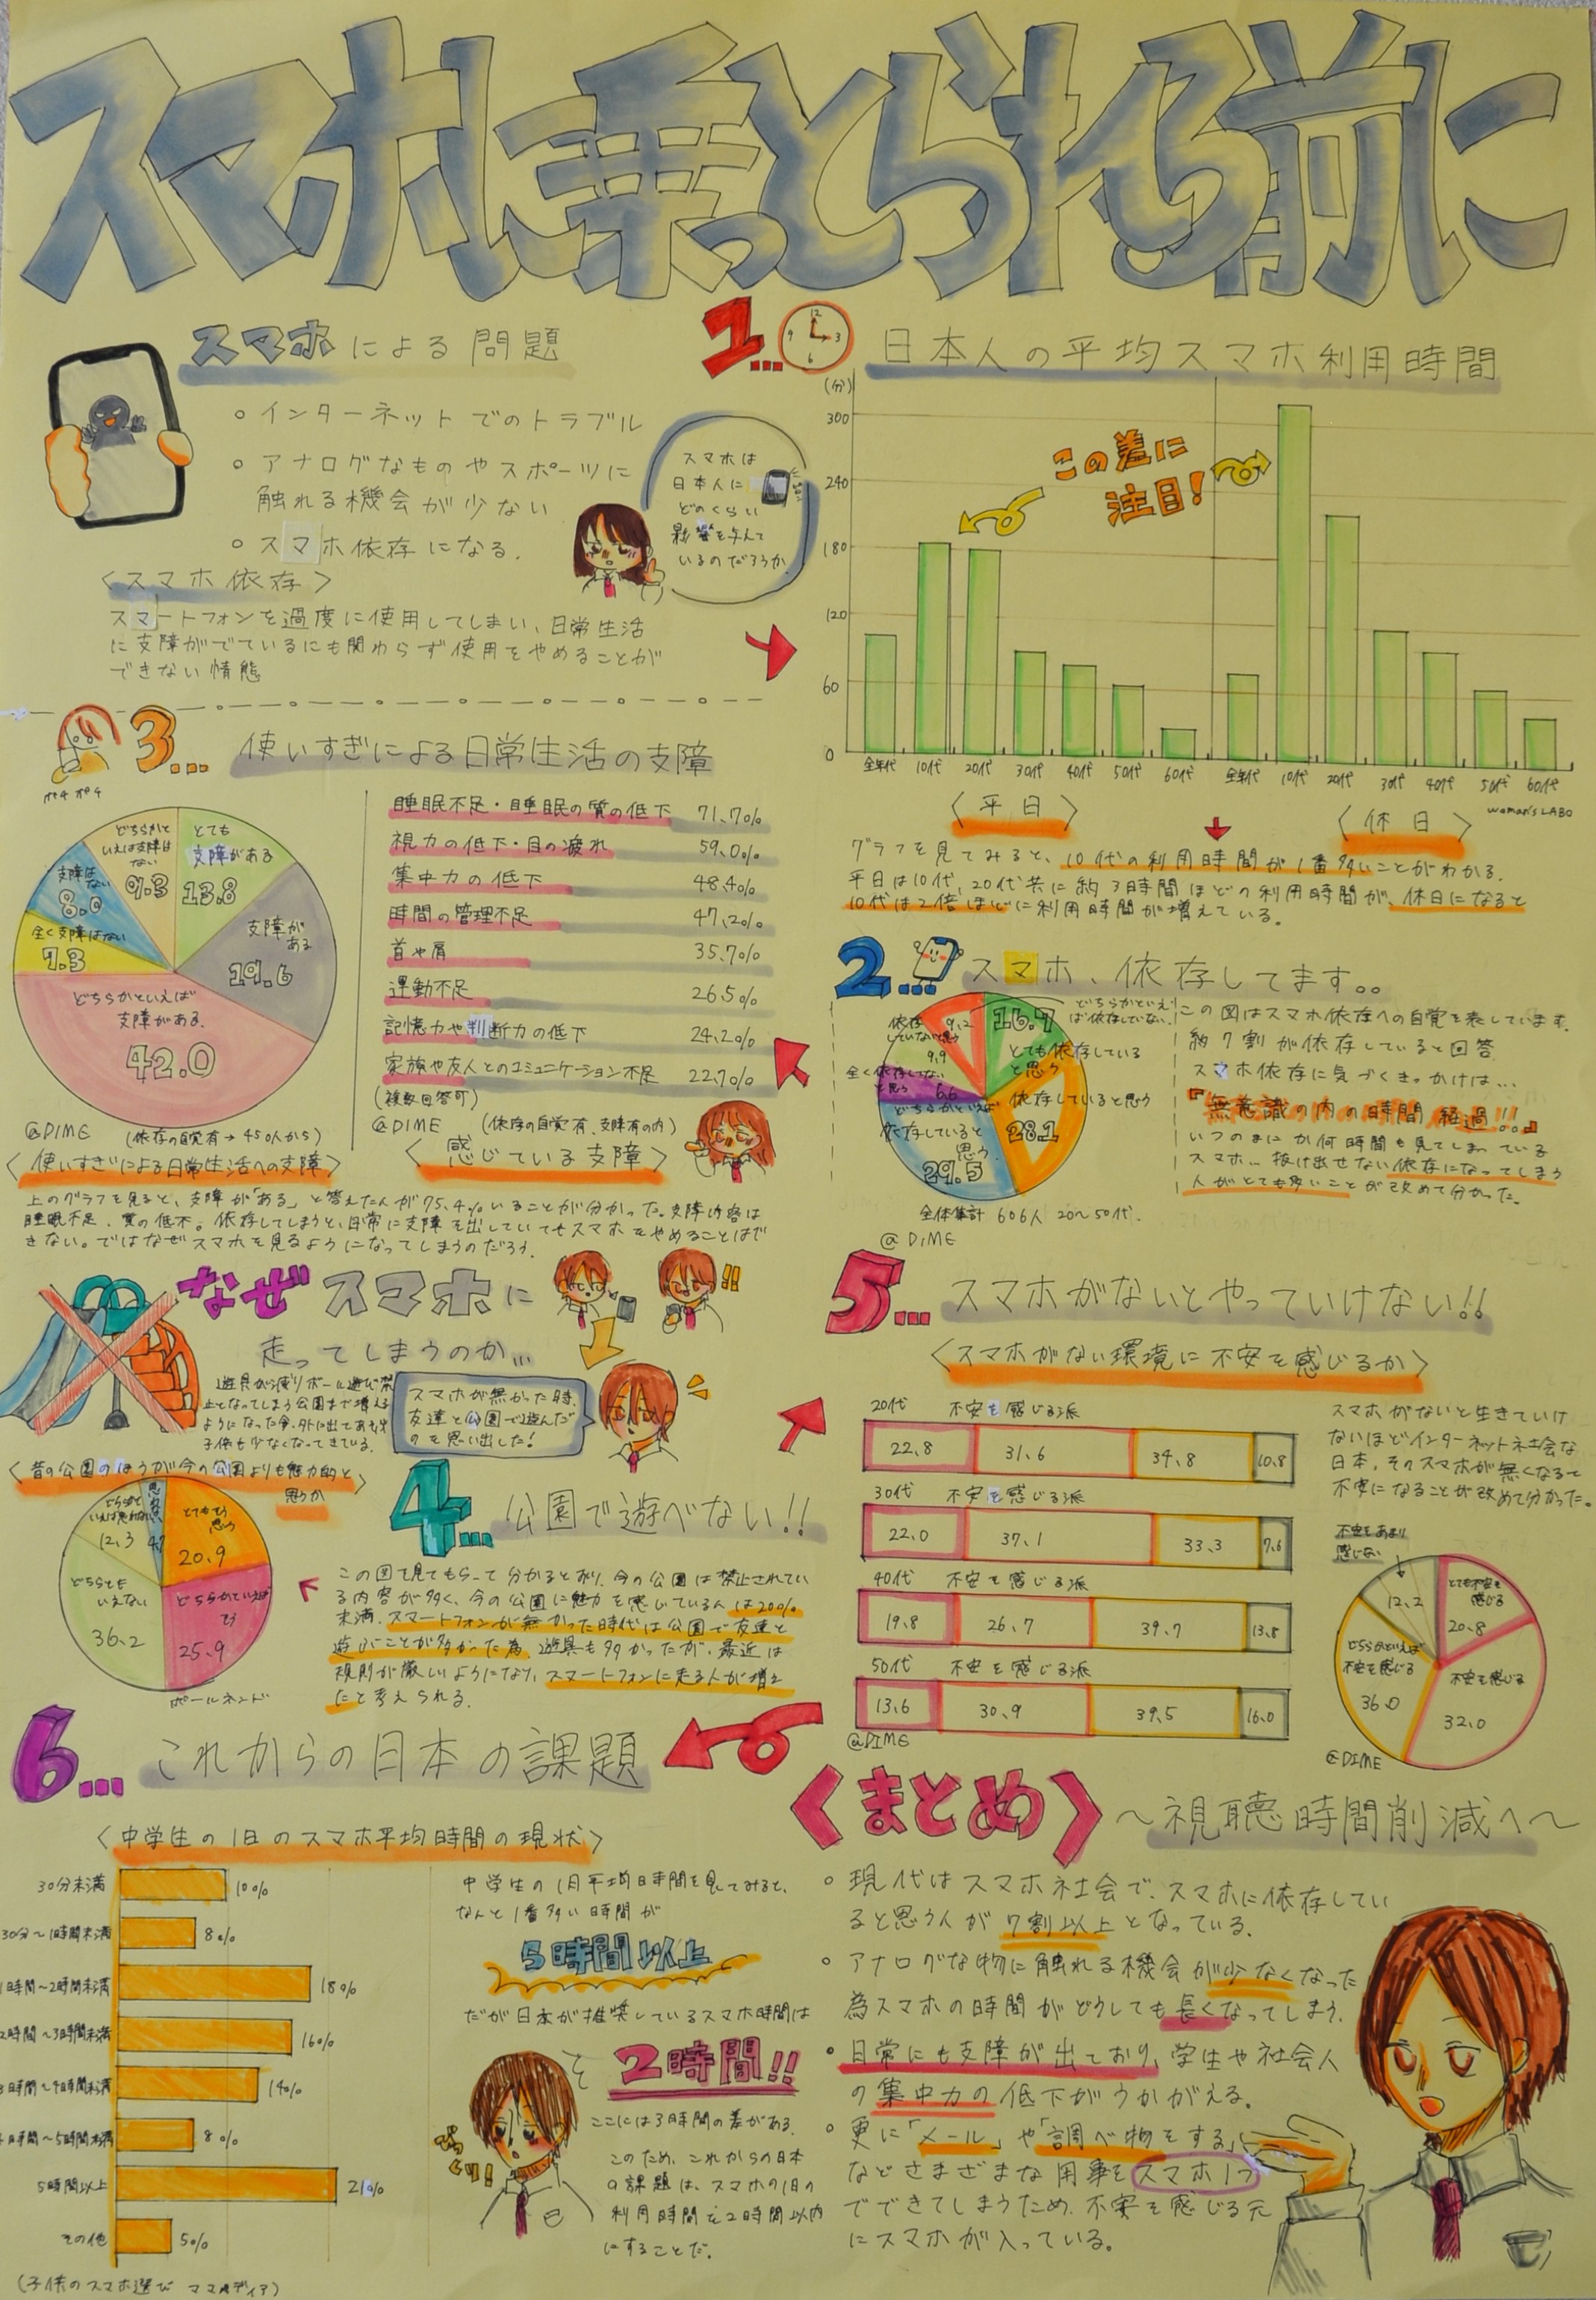 スマホに乗っとられる前に
スマホによる問題
。インターネットでのトラブル
。アナログなものやスポーツに
触れる機会が少ない
。スマホ依存になる。
スマホは
日本人に
どのくらい
影響を与えて
いるのだろうか
〈スマホ依存〉
スマートフォンを過度に使用してしまい、日常生活
に支障がでているにも関わらず使用をやめることが
できない情態
1...
12
3
6
9
日本人の平均スマホ利用時間
(分)
300
240
180
120
60
0
この差に
注目!
全年代 10代 20代 30代 40代 50代 60代 全年代 10代 20代 30代 40代 50代 60代
woman's LABO
〈平日〉
〈休日〉
グラフを見てみると、10代の利用時間が1番多いことがわかる。
平日は10代、20代共に約3時間ほどの利用時間が、休日になると
10代は2倍ほどに利用時間が増えている。
2...
スマホ、依存してます。。
どちらかといえば依存していない
16.7
とても依存している
と思う
依存していると思う
28.1
どちらかといえば
依存していると
思う
29.5
全く依存してない
と思う
6.6
9.9
依存
していないと思う
9.2
全体集計 606人 20〜50代.
@DIME
この図はスマホ依存への自覚を表しています。
約7割が依存していると回答。
スマホ依存に気づくきっかけは...
『無意識の内の時間経過!!』
いつのまにか何時間も見てしまっている
スマホ... 抜け出せない依存になってしまう
人がとても多いことが改めて分かった。
3...
ポチポチ
使いすぎによる日常生活の支障
とても
支障がある
13.8
支障が
ある
19.6
どちらかといえば
支障がある
42.0
全く支障はない
7.3
支障は
ない
8.0
どちらかと
いえば支障は
ない
9.3
@DIME (依存の自覚有→450人から)
〈使いすぎによる日常生活への支障〉
睡眠不足・睡眠の質の低下 71.7%
視力の低下・目の疲れ 59.0%
集中力の低下 48.4%
時間の管理不足 47.2%
首や肩 35.7%
運動不足 26.5%
記憶力や判断力の低下 24.2%
家族や友人とのコミュニケーション不足 22.7%
(複数回答可)
@DIME (依存の自覚有、支障有の内)
〈感じている支障〉
上のグラフを見ると、支障が「ある」と答えた人が75.4%いることが分かった。支障内容は
睡眠不足、質の低下。依存してしまうと、日常に支障を出していてもスマホをやめることはで
きない。ではなぜスマホを見るようになってしまうのだろう。
なぜスマホに
走ってしまうのか...
!!
遊具が減りボール遊び禁
止となってしまう公園まで増える
ようになった今、外に出てあそぶ
子供も少なくなってきている。
スマホが無かった時、
友達と公園で遊んだ
のを思い出した!
〈昔の公園のほうが今の公園よりも魅力的と
思うか〉
とてもそう
思う
20.9
どちらかといえば
そう
25.9
どちらとも
いえない
36.2
どちらかと
いえば思わない
12.3
思わない
4.7
ボールネンド
4...
公園で遊べない!!
この図を見てもらって分かるとおり、今の公園は禁止されてい
る内容が多く、今の公園に魅力を感じている人は20%
未満。スマートフォンが無かった時代は公園で友達と
遊ぶことが多かった為、遊具も多かったが、最近は
規則が厳しいようになり、スマートフォンに走る人が増え
たと考えられる。
5...
スマホがないとやっていけない!!
〈スマホがない環境に不安を感じるか〉
20代 不安を感じる派
22.8 31.6 34.8 10.8
30代 不安を感じる派
22.0 37.1 33.3 7.6
40代 不安を感じる派
19.8 26.7 39.7 13.8
50代 不安を感じる派
13.6 30.9 39.5 16.0
@DIME
スマホがないと生きていけ
ないほどインターネット社会な
日本。そのスマホが無くなると
不安になることが改めて分かった。
不安をあまり
感じない
12.2
とても不安を
感じる
20.8
不安を感じる
32.0
どちらかといえば
不安を感じる
36.0
@DIME
6...
これからの日本の課題
〈中学生の1日のスマホ平均時間の現状〉
30分未満 10%
30分〜1時間未満 8%
1時間〜2時間未満 18%
2時間〜3時間未満 16%
3時間〜4時間未満 14%
4時間〜5時間未満 8%
5時間以上 21%
その他 5%
(子供のスマホ選び ママメディア)
中学生の1月平均日時間を見てみると、
なんと1番多い時間が
5時間以上
だが日本が推奨しているスマホ時間は
2時間!!
ここには3時間の差がある。
このため、これからの日本
の課題は、スマホの1日の
利用時間を2時間以内
にすることだ。
〈まとめ〉
〜視聴時間削減へ〜
。現代はスマホ社会で、スマホに依存してい
ると思う人が7割以上となっている。
。アナログな物に触れる機会が少なくなった
為スマホの時間がどうしても長くなってしまう。
・日常にも支障が出ており、学生や社会人
の集中力の低下がうかがえる。
。更に「メール」や「調べ物をする」
などさまざまな用事をスマホ1つ
でできてしまうため、不安を感じる元
にスマホが入っている。